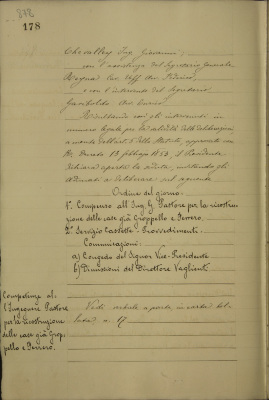 178
Cav. Ing. Giovanni;
con l'assistenza del Segretario Generale
e con l'intervento del Segretario
Gariboldi
Risultando con gli intervenuti in
numero legale per la validità delle deliberazioni
a norma dell'art. dello Statuto, approvato con
R. Decreto 13 febbraio 1853, il Presidente
dichiara aperta la seduta, invitando gli
adunati a deliberare sul seguente
Ordine del giorno
1° Compenso all'Ing. G. Pastore per la ricostru-
zione delle case già Groppello e Ferrero.
2° Servizio Castello - Provvedimenti.
Comunicazioni
a) Congedo del Signor Vice-Presidente
b) Dimissioni del Direttore Voglienti
Competenze al-
l'Ingegnere Pastore
per la ricostruzione
delle case già Grop-
pello e Ferrero.
Vedi verbale a parte, in carta bol-
lata a